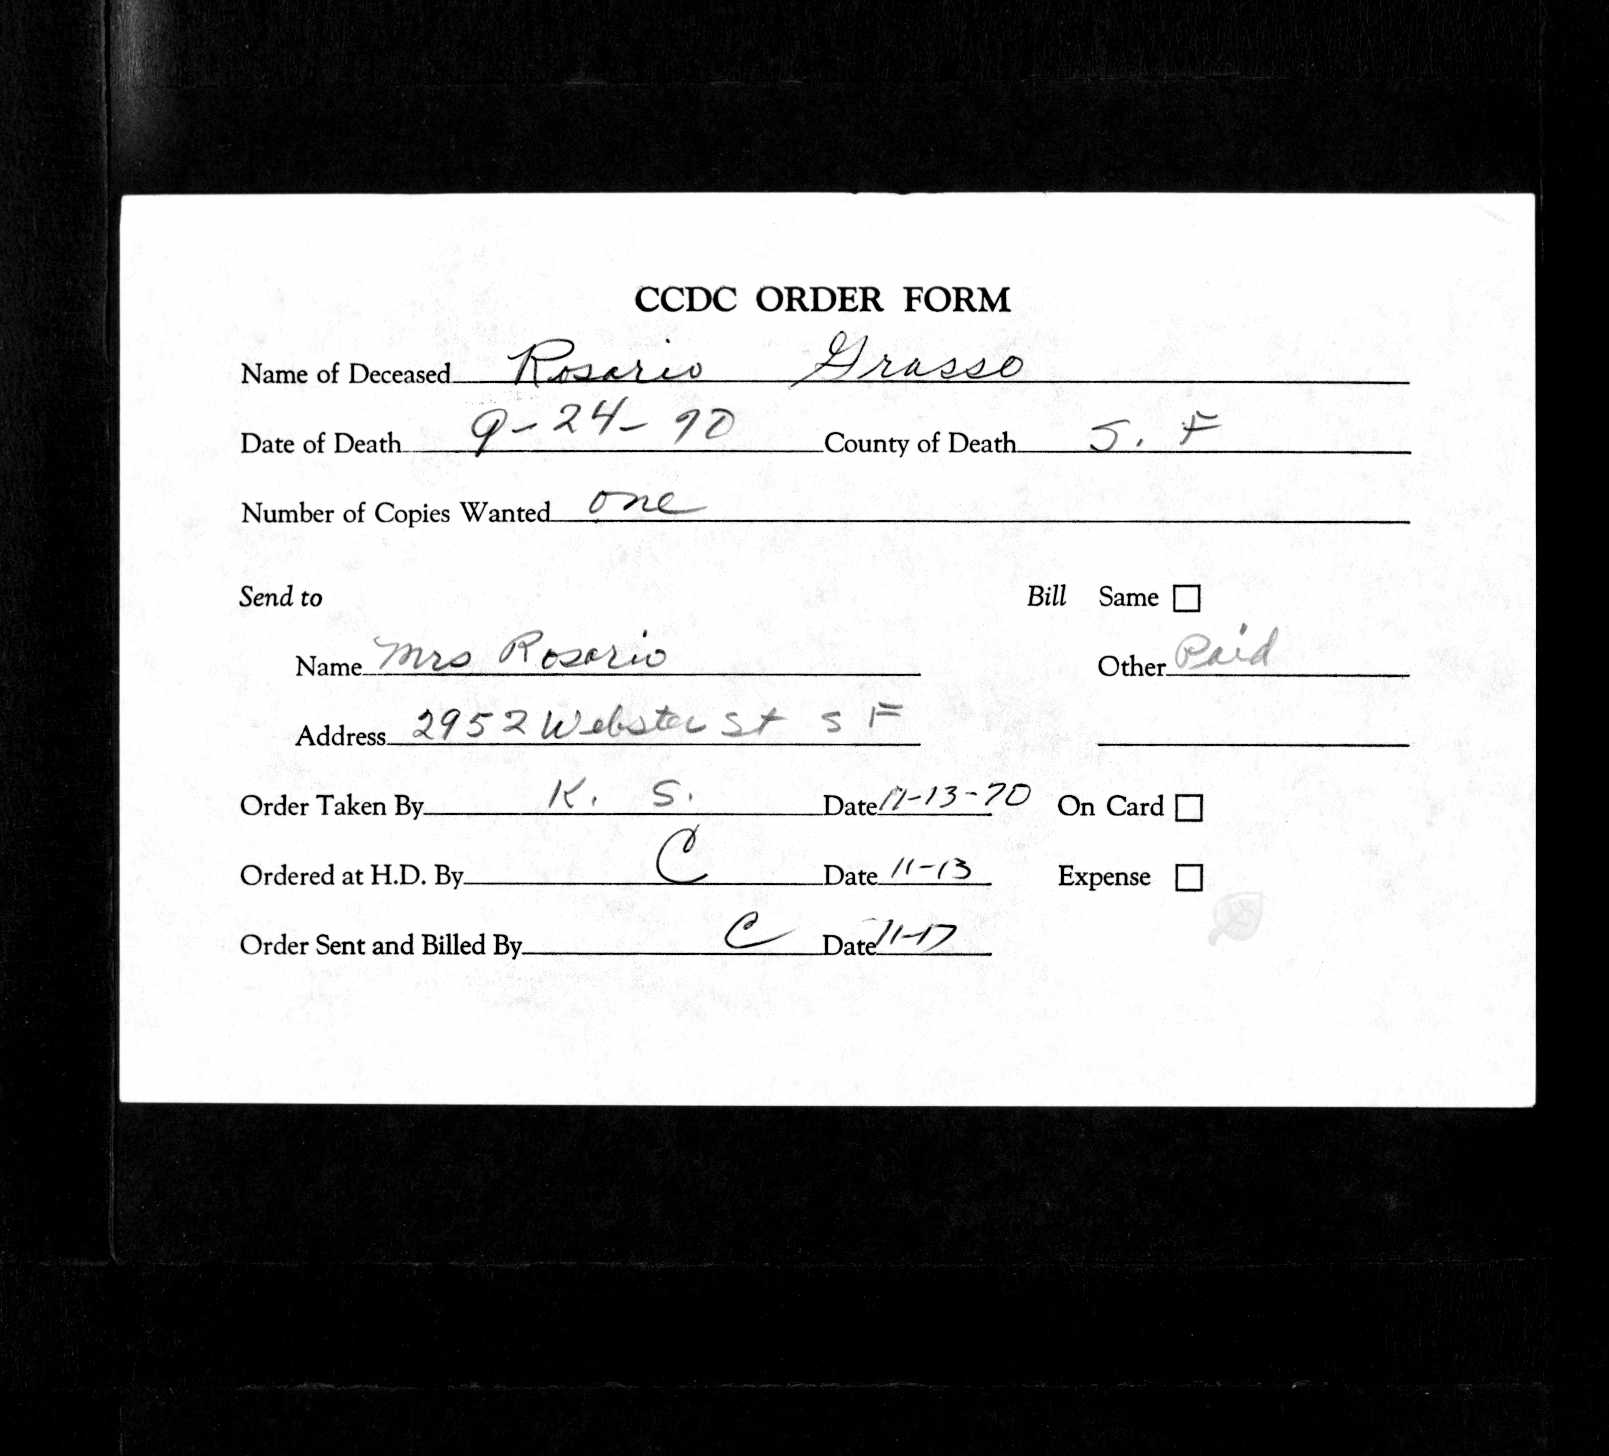 CCDC ORDER FORM
Name of Deceased Rosario Grasso
Date of Death 9-24-70 County of Death S. F
Number of Copies Wanted one
Send to Bill Same
Name Mrs Rosario Other Paid
Address 2952 Webster St S F
Order Taken By K. S. Date 11-13-70 On Card
Ordered at H.D. By C Date 11-13 Expense
Order Sent and Billed By C Date 11-17